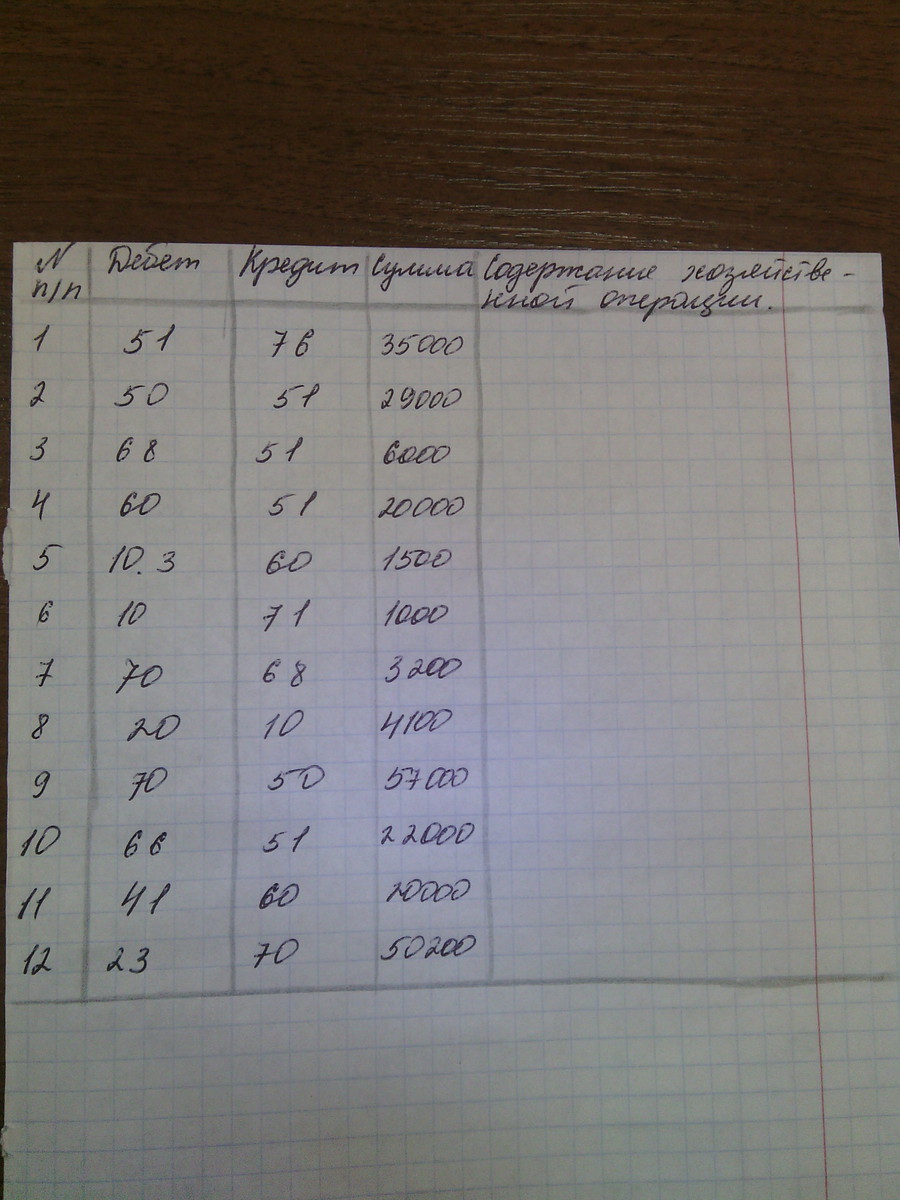 N п/п Дебет Кредит Сумма Содержание хозяйстве-
нной операции.
1 51 76 35000
2 50 51 29000
3 68 51 6000
4 60 51 20000
5 10.3 60 1500
6 10 71 1000
7 70 68 3200
8 20 10 4100
9 70 50 57000
10 66 51 22000
11 41 60 20000
12 23 70 50200